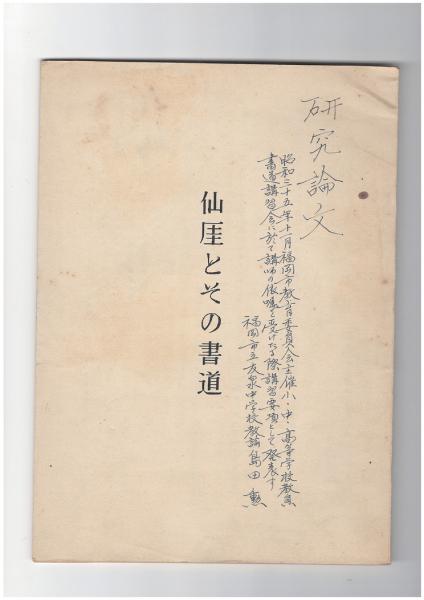 研究論文
昭和三十五年十一月福岡市教育委員会主催小・中・高等学校教員
書道講習会に於て講師の依嘱を受けたる際講習要項として発表す
福岡市立友泉中学校教諭島田勲
仙厓とその書道